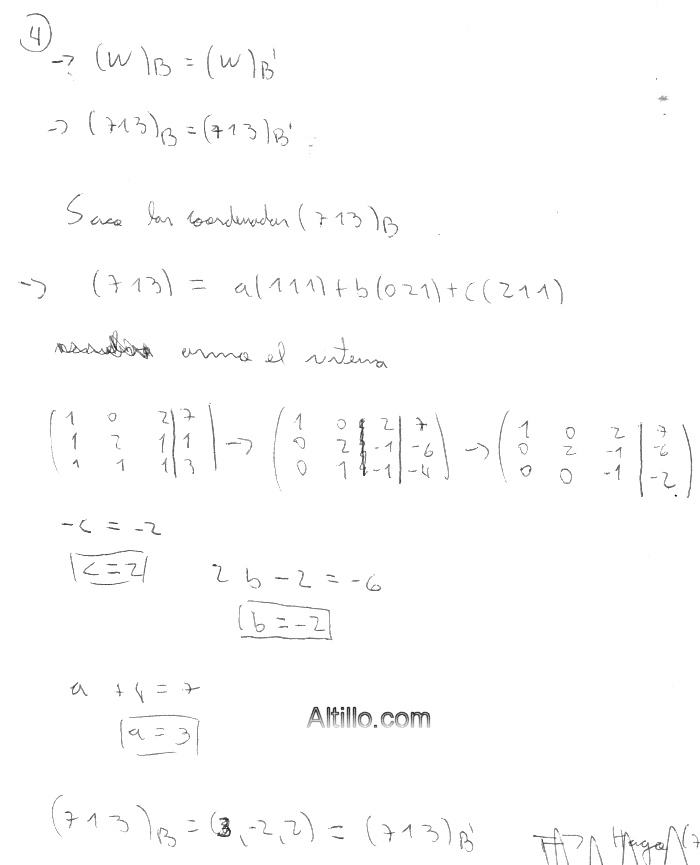 4
→ (W)B = (W)B'
→ (7 1 3)B = (7 1 3)B'
Saco las coordenadas (7 1 3)B
→ (7 1 3) = a(1 1 1) + b(0 2 1) + c(2 1 1)
armo el sistema
(1 0 2 | 7) → (1 0 2 | 7) → (1 0 2 | 7)
(1 2 1 | 1) (0 2 -1 | -6) (0 2 -1 | -6)
(1 1 1 | 3) (0 1 -1 | -4) (0 0 -1 | -2)
-c = -2
c = 2
2b - 2 = -6
b = -2
a + 4 = 7
a = 3
Altillo.com
(7 1 3)B = (3, -2, 2) = (7 1 3)B'
Hago (7